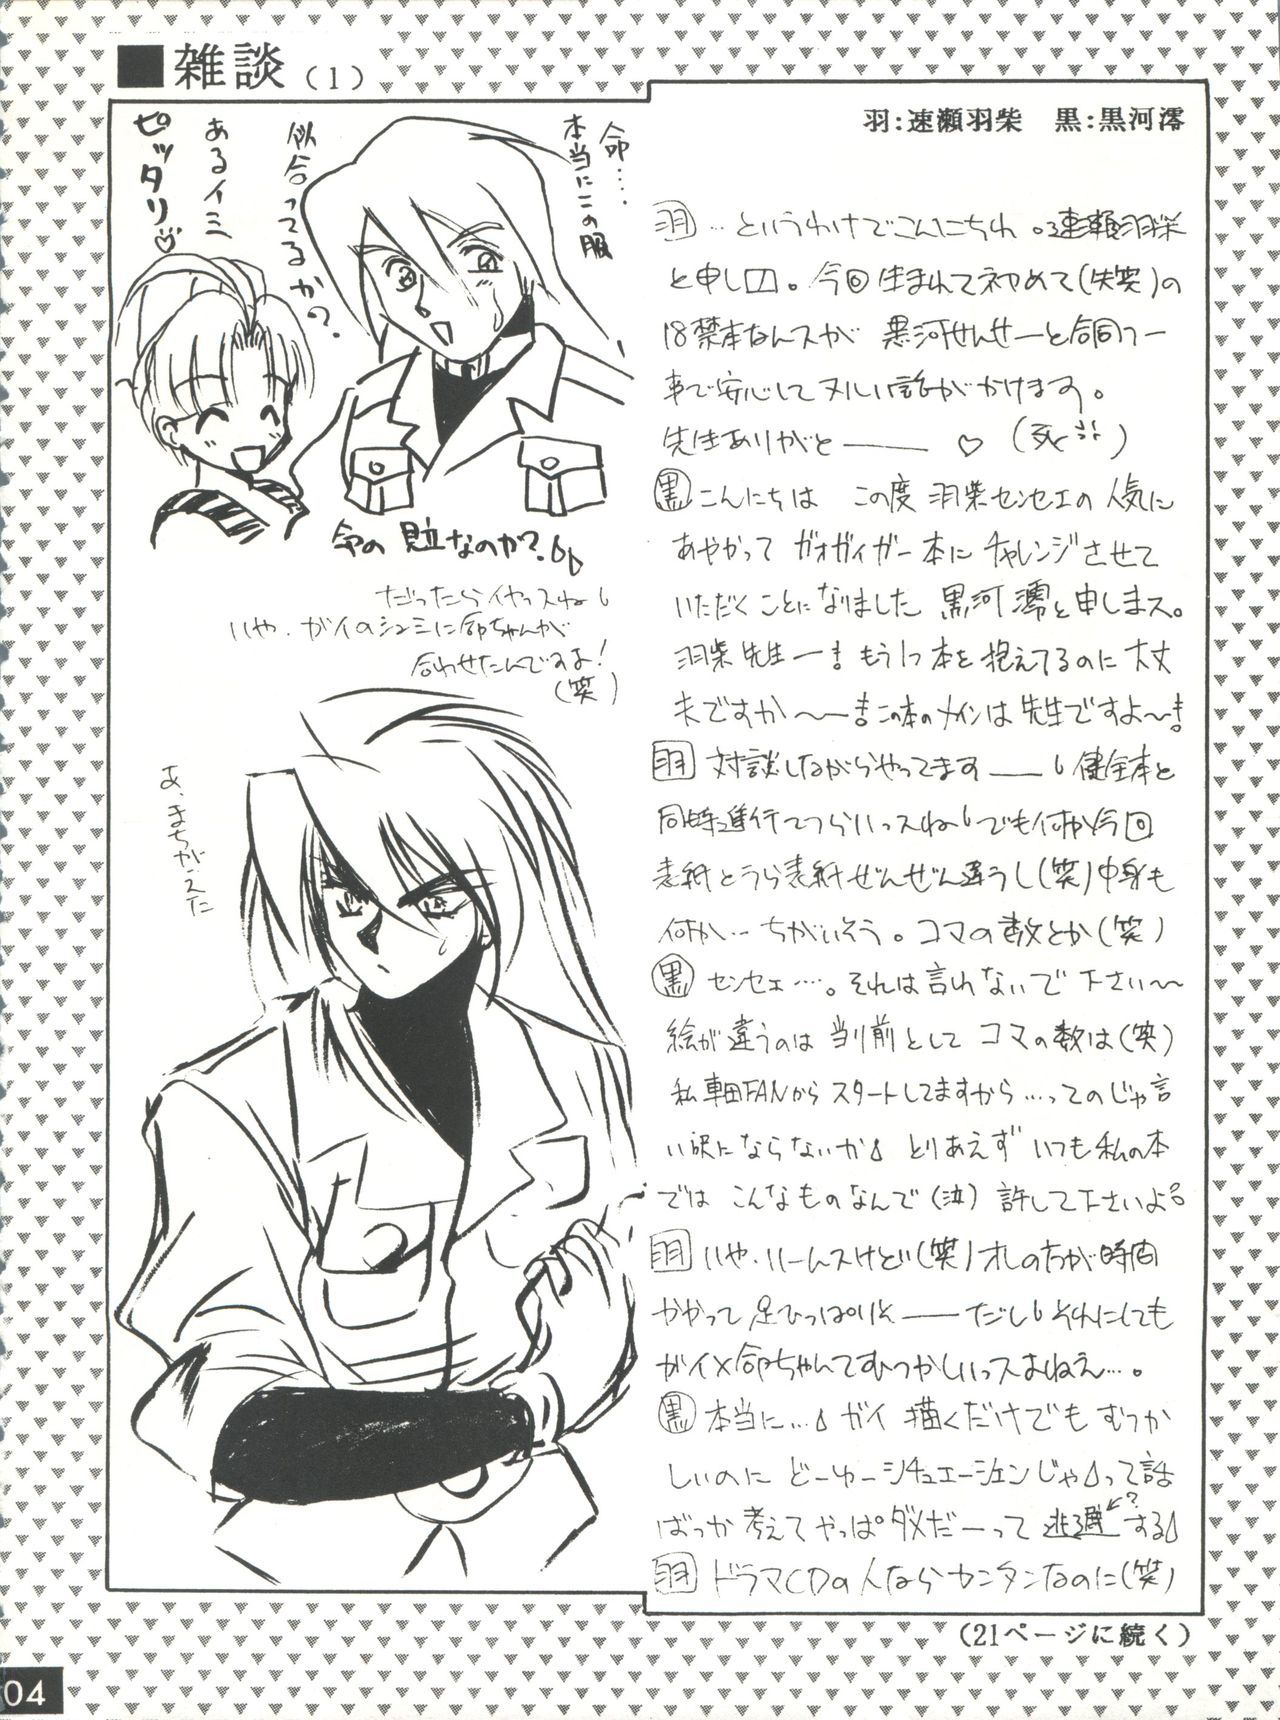 ■雑談(1)
羽:速瀬羽柴　黒:黒河澪
命……
本当にこの服
似合ってるか?
あるイミ
ピッタリ♡
だったらイヤっスね
いや、ガイのシュミに命ちゃんが
合わせたんですよ!
(笑)
あ、まちがえた
羽 …というわけでこんにちわ。速瀬羽柴
と申し□。今回生まれて初めて(失笑)の
18禁本なんスが 黒河せんせーと合同
事で安心してヌルい話がかけます。
先生ありがとー ♡ (死)
黒 こんにちは この度 羽柴センセエの人気に
あやかって ガオガイガー本にチャレンジさせて
いただくことになりました 黒河澪と申しまス。
羽柴先生ー! もう1つ本を抱えてるのに大丈
夫ですか〜ー! この本のメインは先生ですよ〜!
羽 対談しながらやってますー 健全本と
同時進行でつらいっスね でも何か今回
表紙とうら表紙ぜんぜん違うし(笑)中身も
何か…ちがいそう。コマの数とか(笑)
黒 センセエ…。それは言わないで下さい〜
絵が違うのは当り前として コマの数は(笑)
私車田FANからスタートしてますから…ってのじゃ言
い訳にならないか とりあえず いつも私の本
では こんなものなんで(泣)許して下さいよ
羽 いや、いーんスけど(笑)オレの方が時間
かかって足ひっぱりそーだし それにしても
ガイ×命ちゃんてむつかしいっスよねえ…。
黒 本当に… ガイ描くだけでもむつか
しいのに どーゆーシチュエーションじゃって話
ばっか考えてやっぱダメだーって 逃避?する
羽 ドラマCDの人ならカンタンなのに(笑)
(21ページに続く)
04